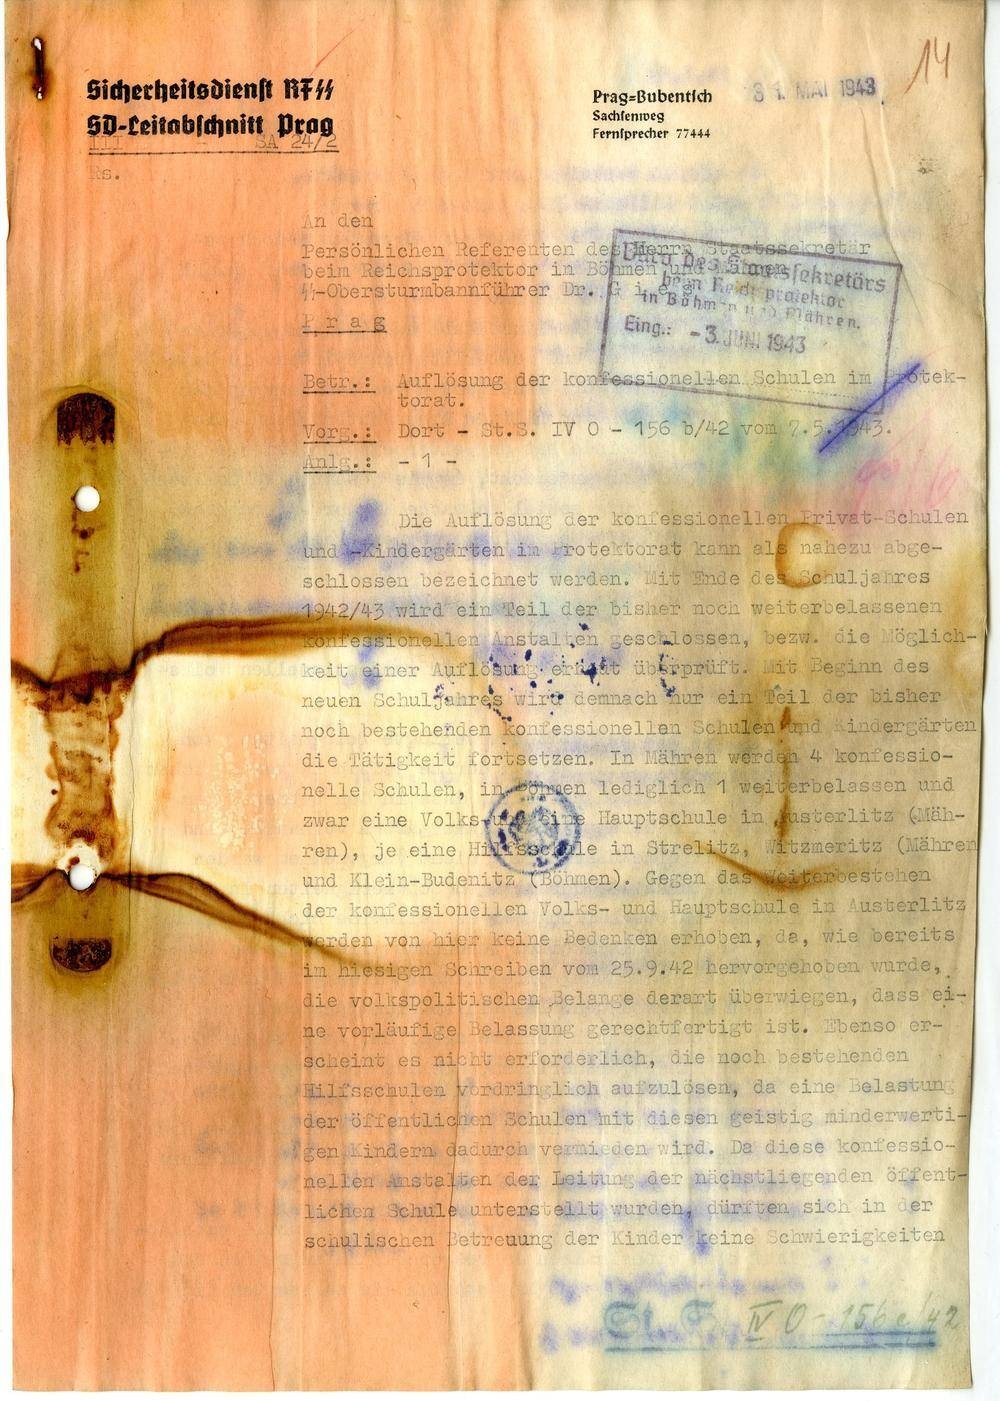 14
Sicherheitsdienst RFSS
SD-Leitabschnitt Prag
III SA 24/2
Rs.
Prag-Bubentsch
Sachsenweg
Fernsprecher 77444
31. MAI 1943
An den
Persönlichen Referenten des Herrn Staatssekretär
beim Reichsprotektor in Böhmen und Mähren
SS-Obersturmbannführer Dr. G i e s
P r a g
Büro des Staatssekretärs
beim Reichsprotektor
in Böhmen und Mähren.
Eing.: -3. JUNI 1943
Betr.: Auflösung der konfessionellen Schulen im Protek-
torat.
Vorg.: Dort - St.S. IV O - 156 b/42 vom 7.5.1943.
Anlg.: - 1 -
Die Auflösung der konfessionellen Privat-Schulen
und -Kindergärten im Protektorat kann als nahezu abge-
schlossen bezeichnet werden. Mit Ende des Schuljahres
1942/43 wird ein Teil der bisher noch weiterbelassenen
konfessionellen Anstalten geschlossen, bezw. die Möglich-
keit einer Auflösung erneut überprüft. Mit Beginn des
neuen Schuljahres wird demnach nur ein Teil der bisher
noch bestehenden konfessionellen Schulen und Kindergärten
die Tätigkeit fortsetzen. In Mähren werden 4 konfessio-
nelle Schulen, in Böhmen lediglich 1 weiterbelassen und
zwar eine Volks- und eine Hauptschule in Austerlitz (Mäh-
ren), je eine Hilfsschule in Strelitz, Witzmeritz (Mähren
und Klein-Budenitz (Böhmen). Gegen das Weiterbestehen
der konfessionellen Volks- und Hauptschule in Austerlitz
werden von hier keine Bedenken erhoben, da, wie bereits
im hiesigen Schreiben vom 25.9.42 hervorgehoben wurde,
die volkspolitischen Belange derart überwiegen, dass ei-
ne vorläufige Belassung gerechtfertigt ist. Ebenso er-
scheint es nicht erforderlich, die noch bestehenden
Hilfsschulen vordringlich aufzulösen, da eine Belastung
der öffentlichen Schulen mit diesen geistig minderwerti-
gen Kindern dadurch vermieden wird. Da diese konfessio-
nellen Anstalten der Leitung der nächstliegenden öffent-
lichen Schule unterstellt wurden, dürften sich in der
schulischen Betreuung der Kinder keine Schwierigkeiten
St. S. IV O - 156 c/42